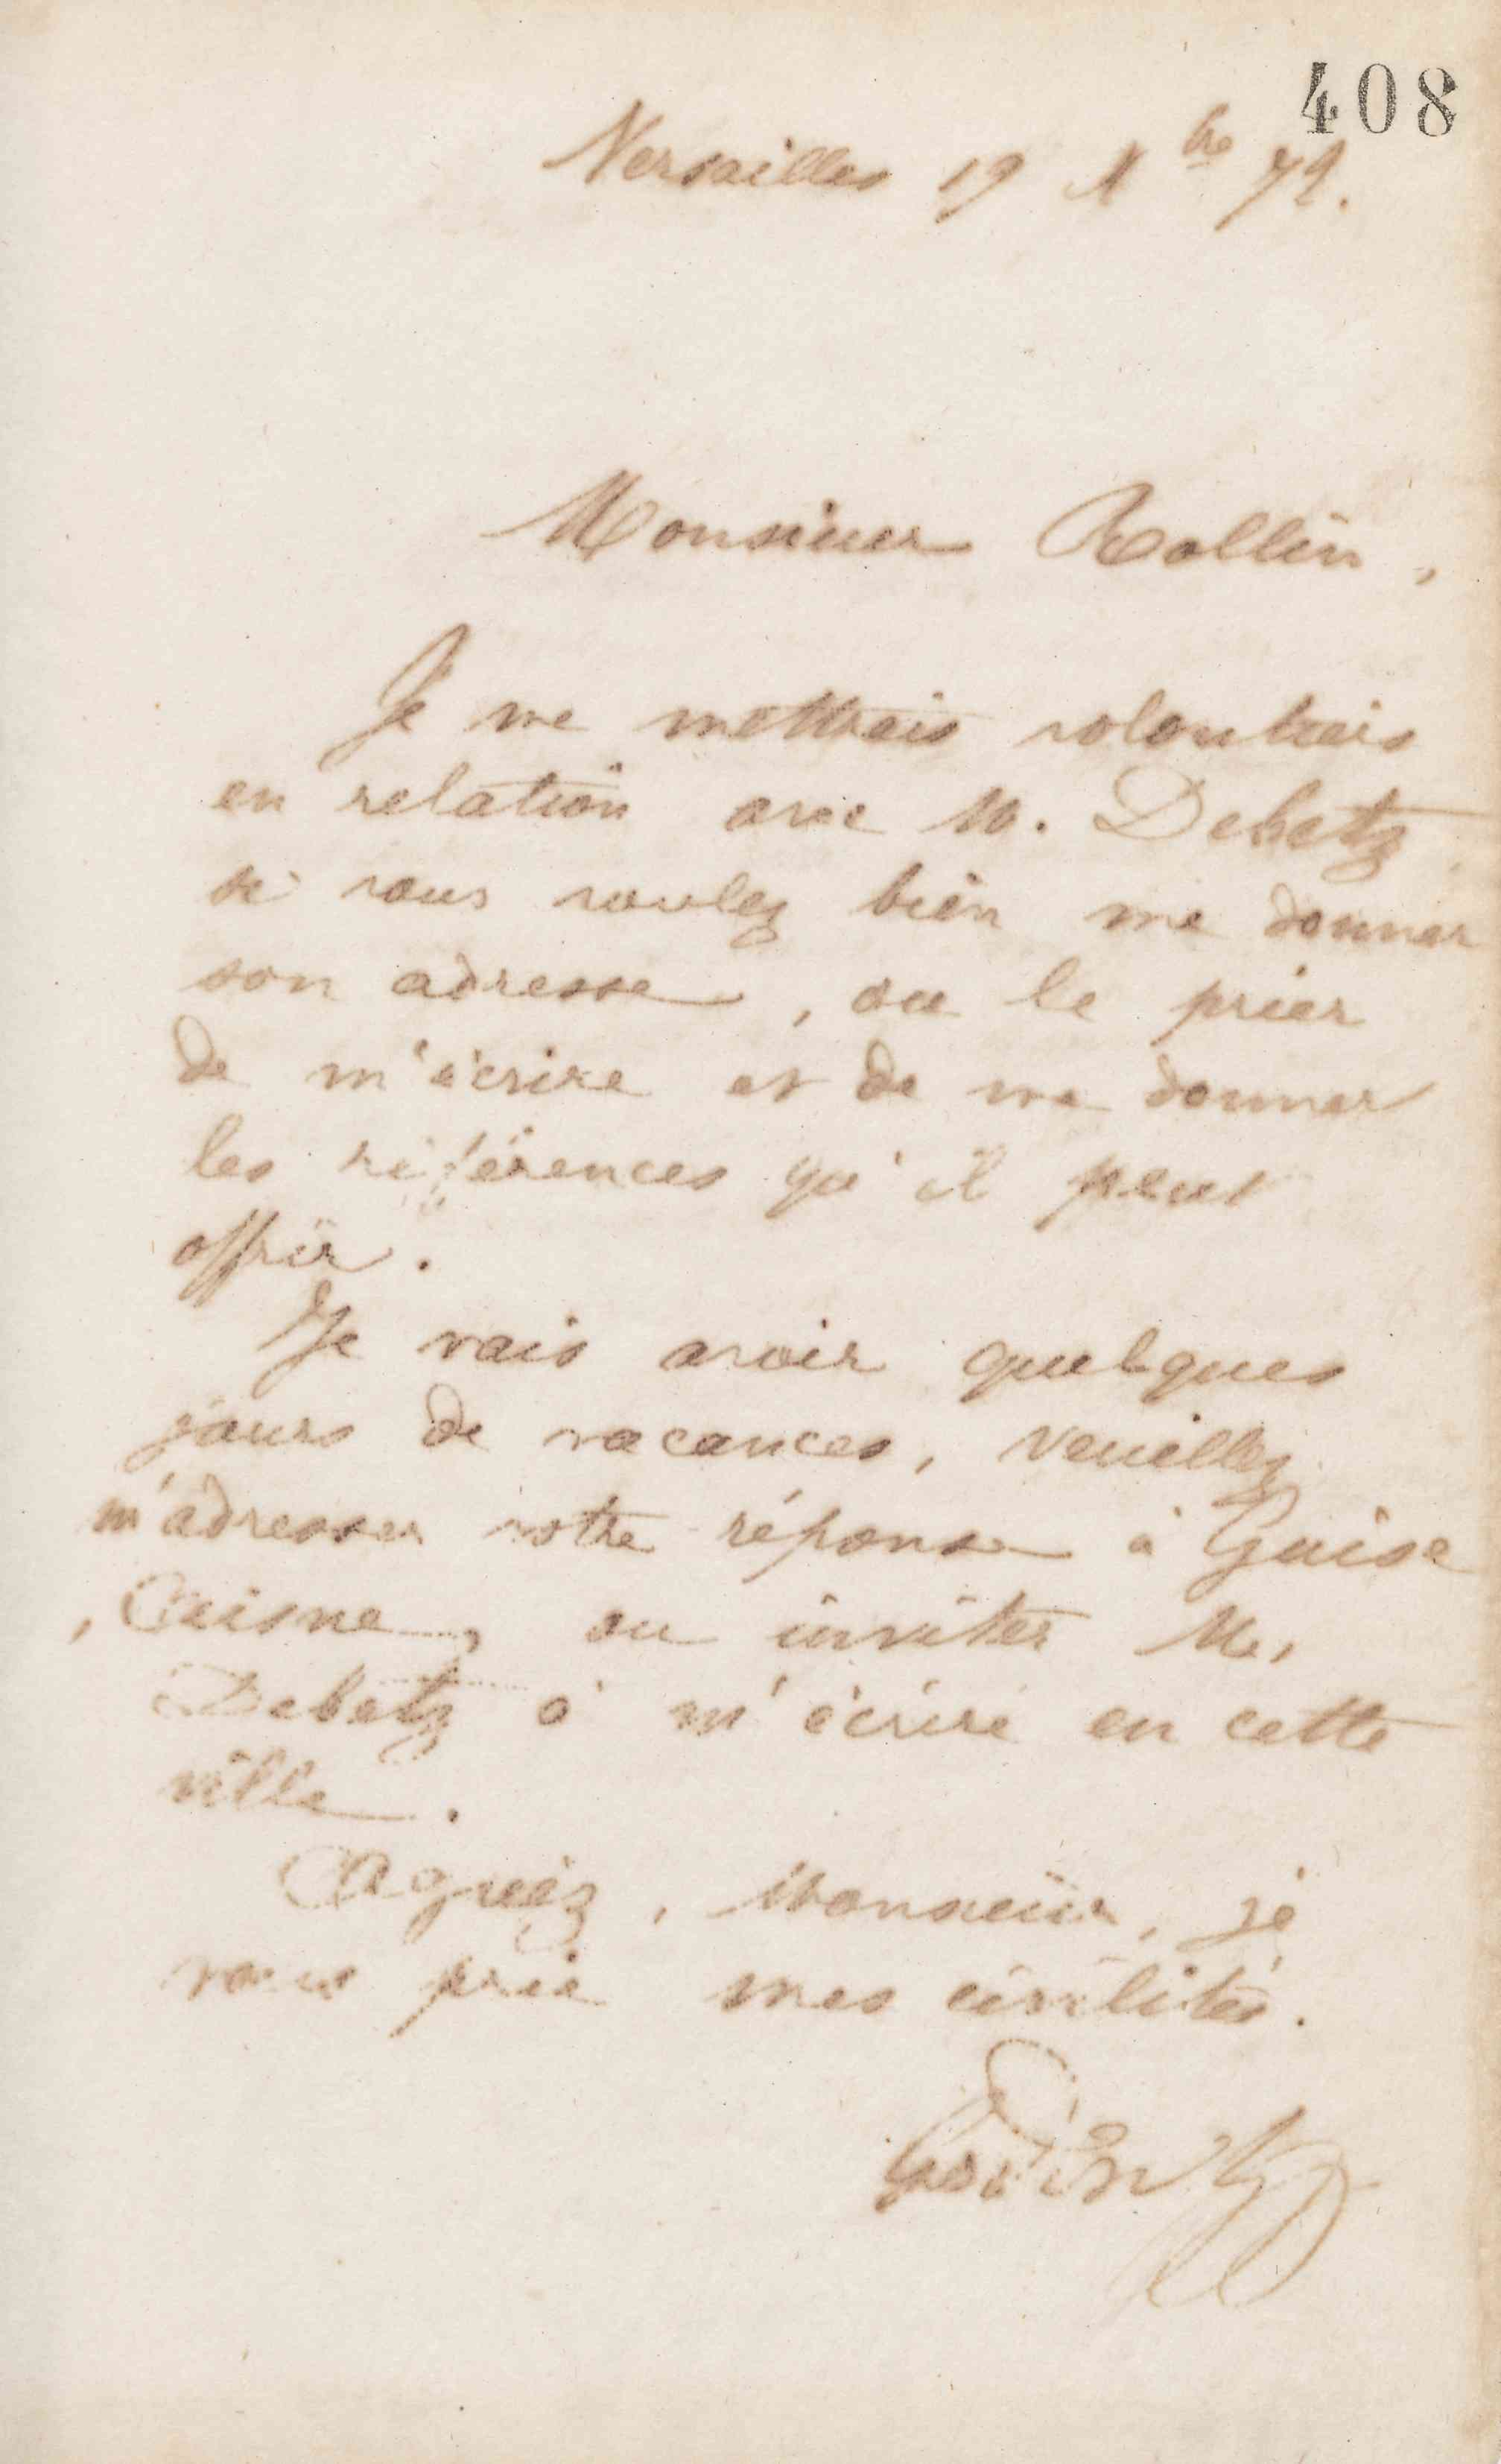 408
Versailles 19 Xbre 72.
Monsieur Rollin,
Je me mettrais volontiers
en relation avec M. Debetz
si vous voulez bien me donner
son adresse, ou le prier
de m'écrire et de me donner
les références qu'il peut
offrir.
Je vais avoir quelques
jours de vacances, veuillez
m'adresser votre réponse à Guise
, Aisne, ou inviter M.
Debetz à m'écrire en cette
ville.
Agréez, Monsieur, je
vous prie mes civilités.
Godin